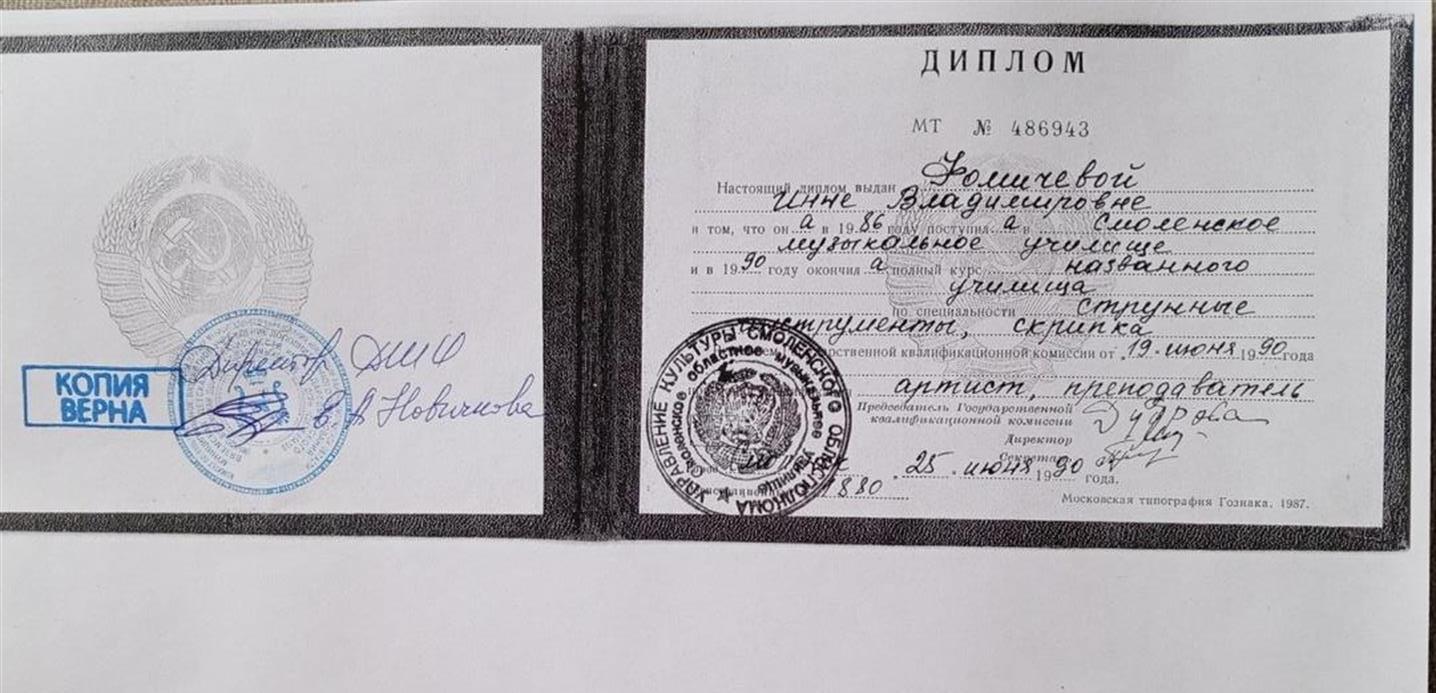 КОПИЯ
ВЕРНА
Директор ДШИ
Е. А. Новичкова
ДИПЛОМ
МТ № 486943
Настоящий диплом выдан Фомичевой
Инне Владимировне
в том, что он а в 1986 году поступил а в Смоленское
музыкальное училище
и в 1990 году окончил а полный курс названного
училища
по специальности струнные
инструменты, скрипка
19 июня 1990 года
квалификационной комиссии от
артист, преподаватель
Председатель Государственной
квалификационной комиссии
Директор
Секретарь
25 июня 1990 года.
880
Московская типография Гознака. 1987.
УПРАВЛЕНИЕ КУЛЬТУРЫ СМОЛЕНСКОГО ОБЛИСПОЛКОМА
Смоленское областное музыкальное училище